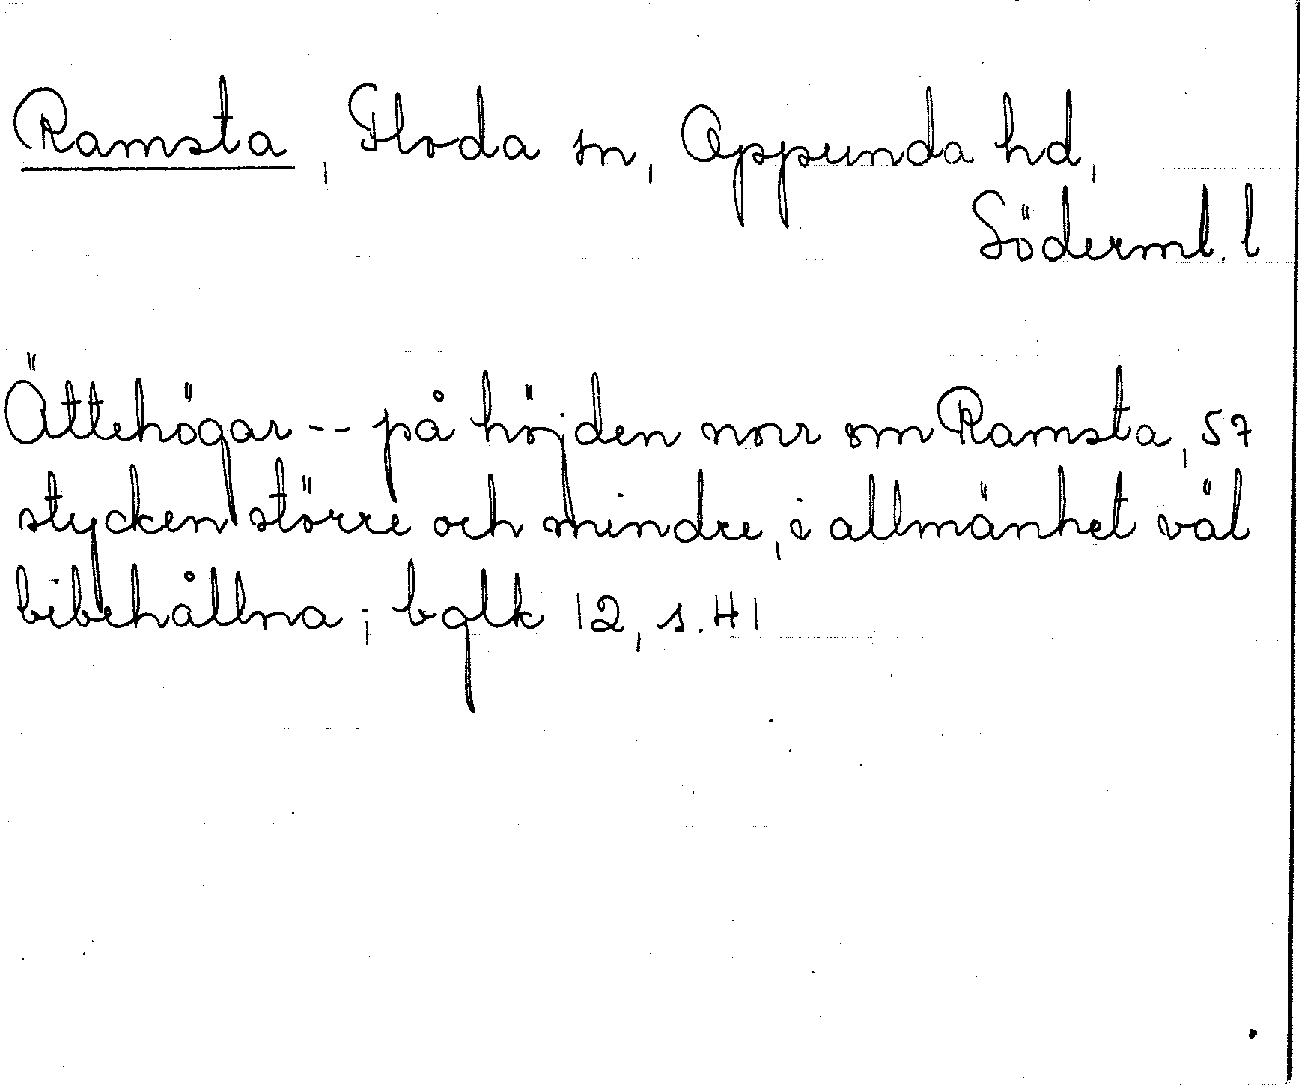 Ramsta, Floda sn, Oppunda hd,
Söderml. l
Ättehögar -- på höjden norr om Ramsta, 57
stycken större och mindre, i allmänhet väl
bibehållna; bglk 12, s. 41